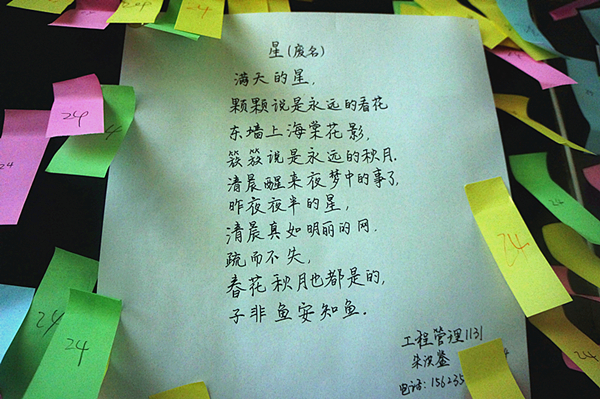 星(废名)
满天的星,
颗颗说是永远的春花
东墙上海棠花影,
簇簇说是永远的秋月.
清晨醒来夜梦中的事了,
昨夜夜半的星,
清晨真如明丽的网.
疏而不失,
春花秋月也都是的,
子非鱼安知鱼.
工程管理1131
朱
电话:15623
24
24
24
24
24
24
24